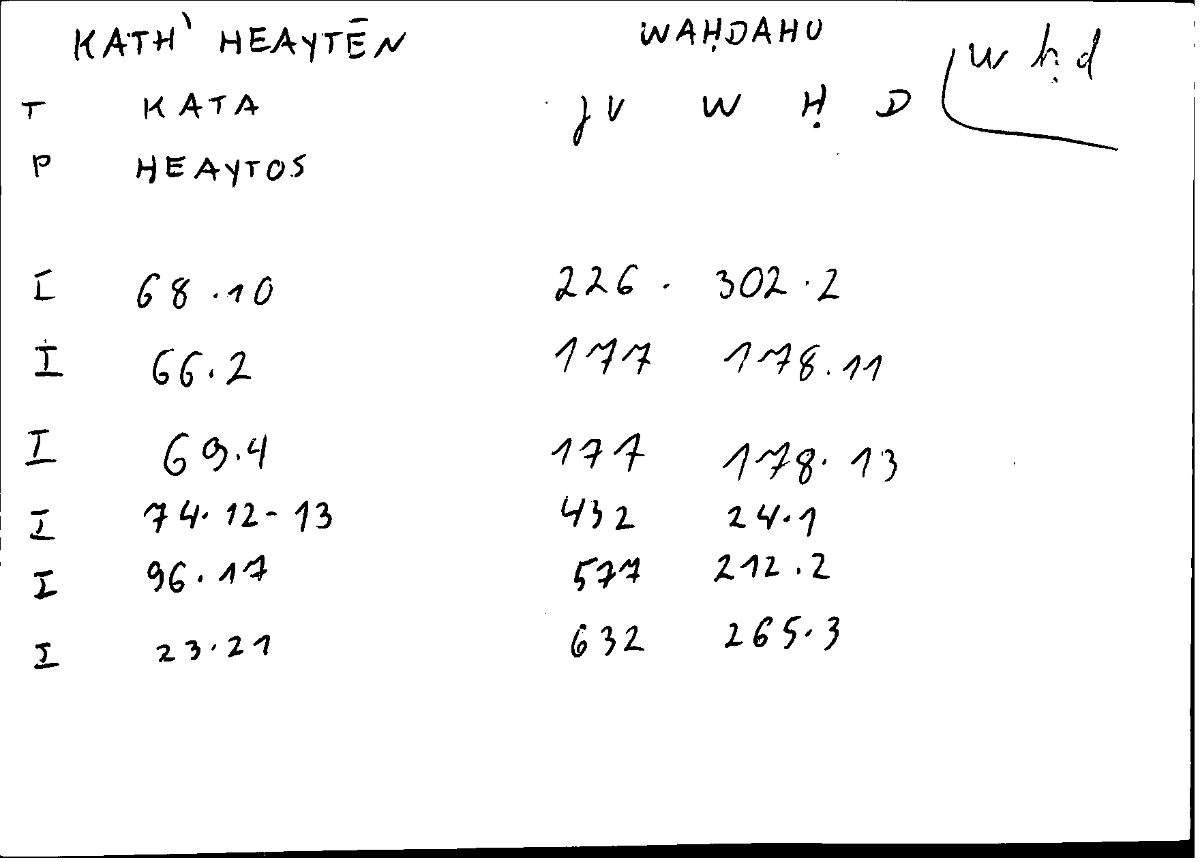 KATH' HEAYTĒN WAḤDAHU
T KATA JV W Ḥ D w ḥ d
P HEAYTOS
I 68.10 226. 302.2
I 66.2 177 178.11
I 69.4 177 178.13
I 74.12-13 432 24.1
I 96.17 577 212.2
I 23.21 632 265.3